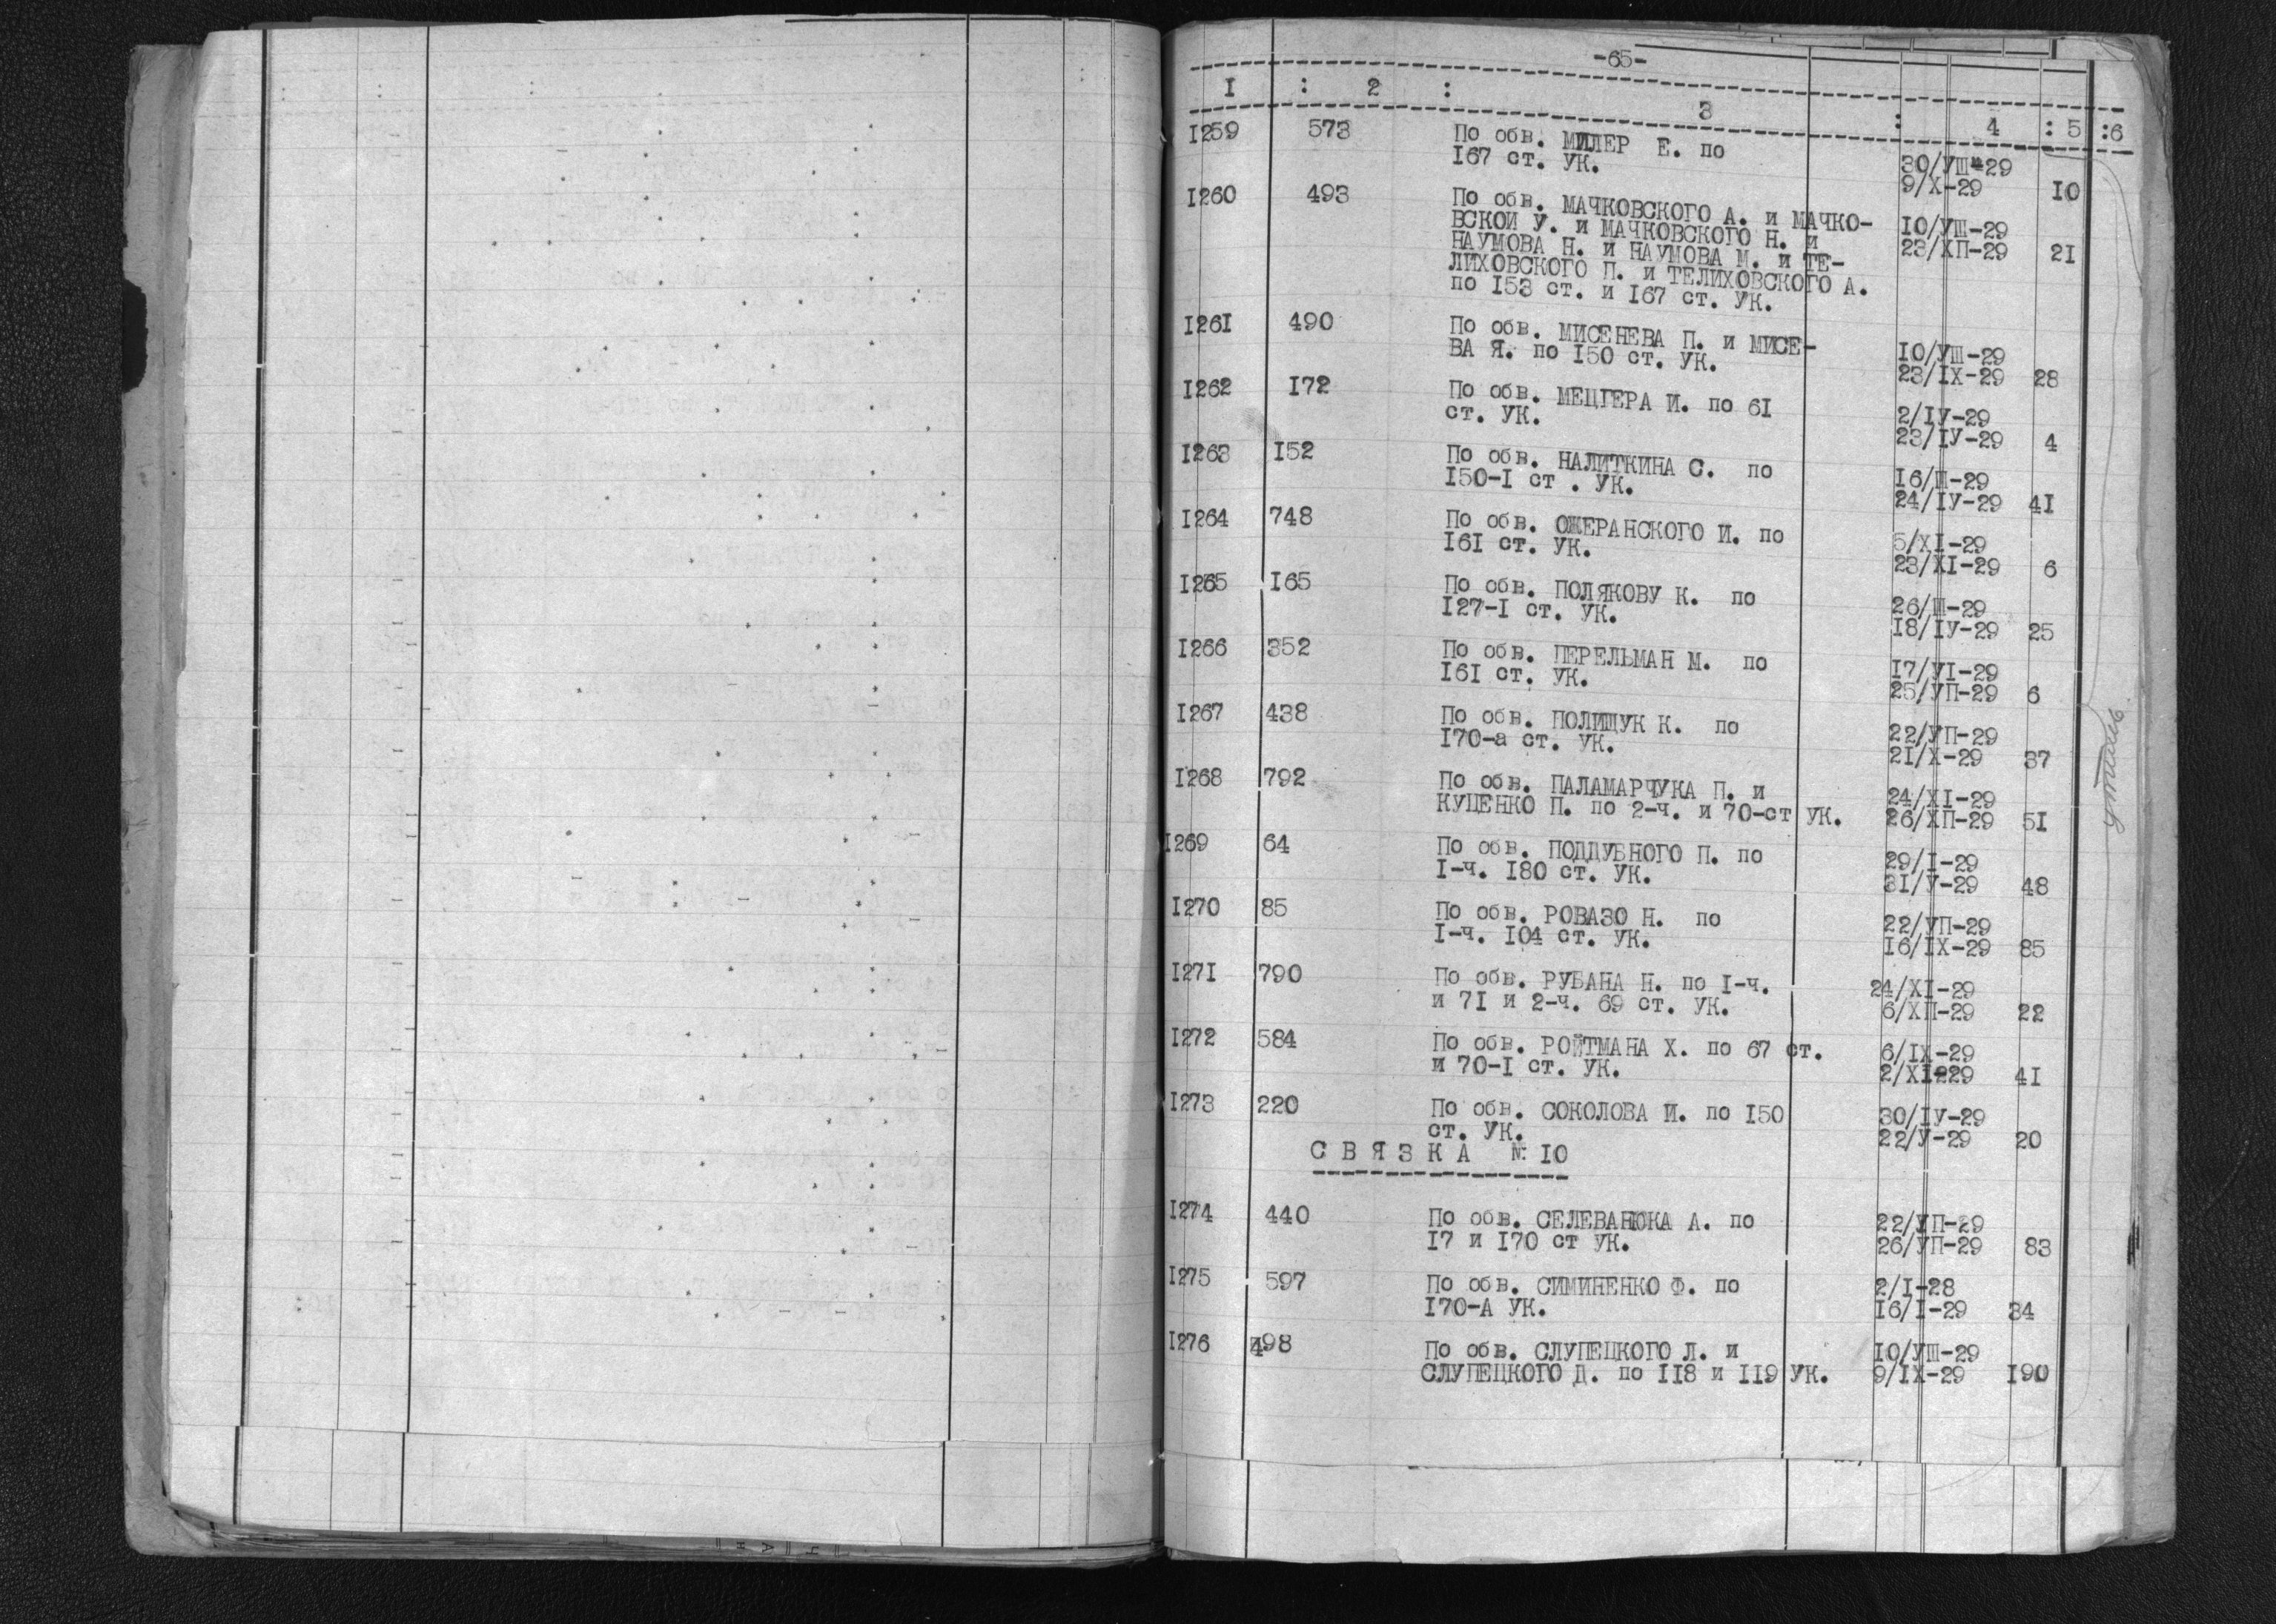 -65-
I : 2 : 3 : 4 : 5 : 6
I259 573 По обв. МИЛЕР Е. по 30/УШ-29
I67 ст. УК. 9/Х-29 I0
I260 493 По обв. МАЧКОВСКОГО А. и МАЧКО- I0/УШ-29
ВСКОЙ У. и МАЧКОВСКОГО Н. и 23/ХП-29 2I
НАУМОВА Н. и НАУМОВА М. и ТЕ-
ЛИХОВСКОГО П. и ТЕЛИХОВСКОГО А.
по I53 ст. и I67 ст. УК.
I26I 490 По обв. МИСЕНЕВА П. и МИСЕ- I0/УШ-29
ВА Я. по I50 ст. УК. 23/IХ-29 28
I262 I72 По обв. МЕЦГЕРА И. по 6I 2/IУ-29
ст. УК. 23/IУ-29 4
I263 I52 По обв. НАЛИТКИНА С. по I6/Ш-29
I50-I ст . УК. 24/IУ-29 4I
I264 748 По обв. ОЖЕРАНСКОГО И. по 5/ХI-29
I6I ст. УК. 23/ХI-29 6
I265 I65 По обв. ПОЛЯКОВУ К. по 26/Ш-29
I27-I ст. УК. I8/IУ-29 25
I266 352 По обв. ПЕРЕЛЬМАН М. по I7/УI-29
I6I ст. УК. 25/УП-29 6
I267 438 По обв. ПОЛИЩУК К. по 22/УП-29
I70-а ст. УК. 2I/Х-29 37
I268 792 По обв. ПАЛАМАРЧУКА П. и 24/ХI-29
КУЦЕНКО П. по 2-ч. и 70-ст УК. 26/ХП-29 5I
I269 64 По обв. ПОДДУБНОГО П. по 29/I-29
I-ч. I80 ст. УК. 3I/У-29 48
I270 85 По обв. РОВАЗО Н. по 22/УП-29
I-ч. I04 ст. УК. I6/IХ-29 85
I27I 790 По обв. РУБАНА Н. по I-ч. 24/ХI-29
и 7I и 2-ч. 69 ст. УК. 6/ХП-29 22
I272 584 По обв. РОЙТМАНА Х. по 67 ст. 6/IХ-29
и 70-I ст. УК. 2/ХI229 4I
I273 220 По обв. СОКОЛОВА И. по I50 30/IУ-29
ст. УК. 22/У-29 20
С В Я З К А № I0
I274 440 По обв. СЕЛЕВАНЮКА А. по 22/УП-29
I7 и I70 ст УК. 26/УП-29 83
I275 597 По обв. СИМИНЕНКО Ф. по 2/I-28
I70-А УК. I6/I-29 34
I276 498 По обв. СЛУПЕЦКОГО Л. и I0/УШ-29
СЛУПЕЦКОГО Д. по II8 и II9 УК. 9/IХ-29 I90
утиль